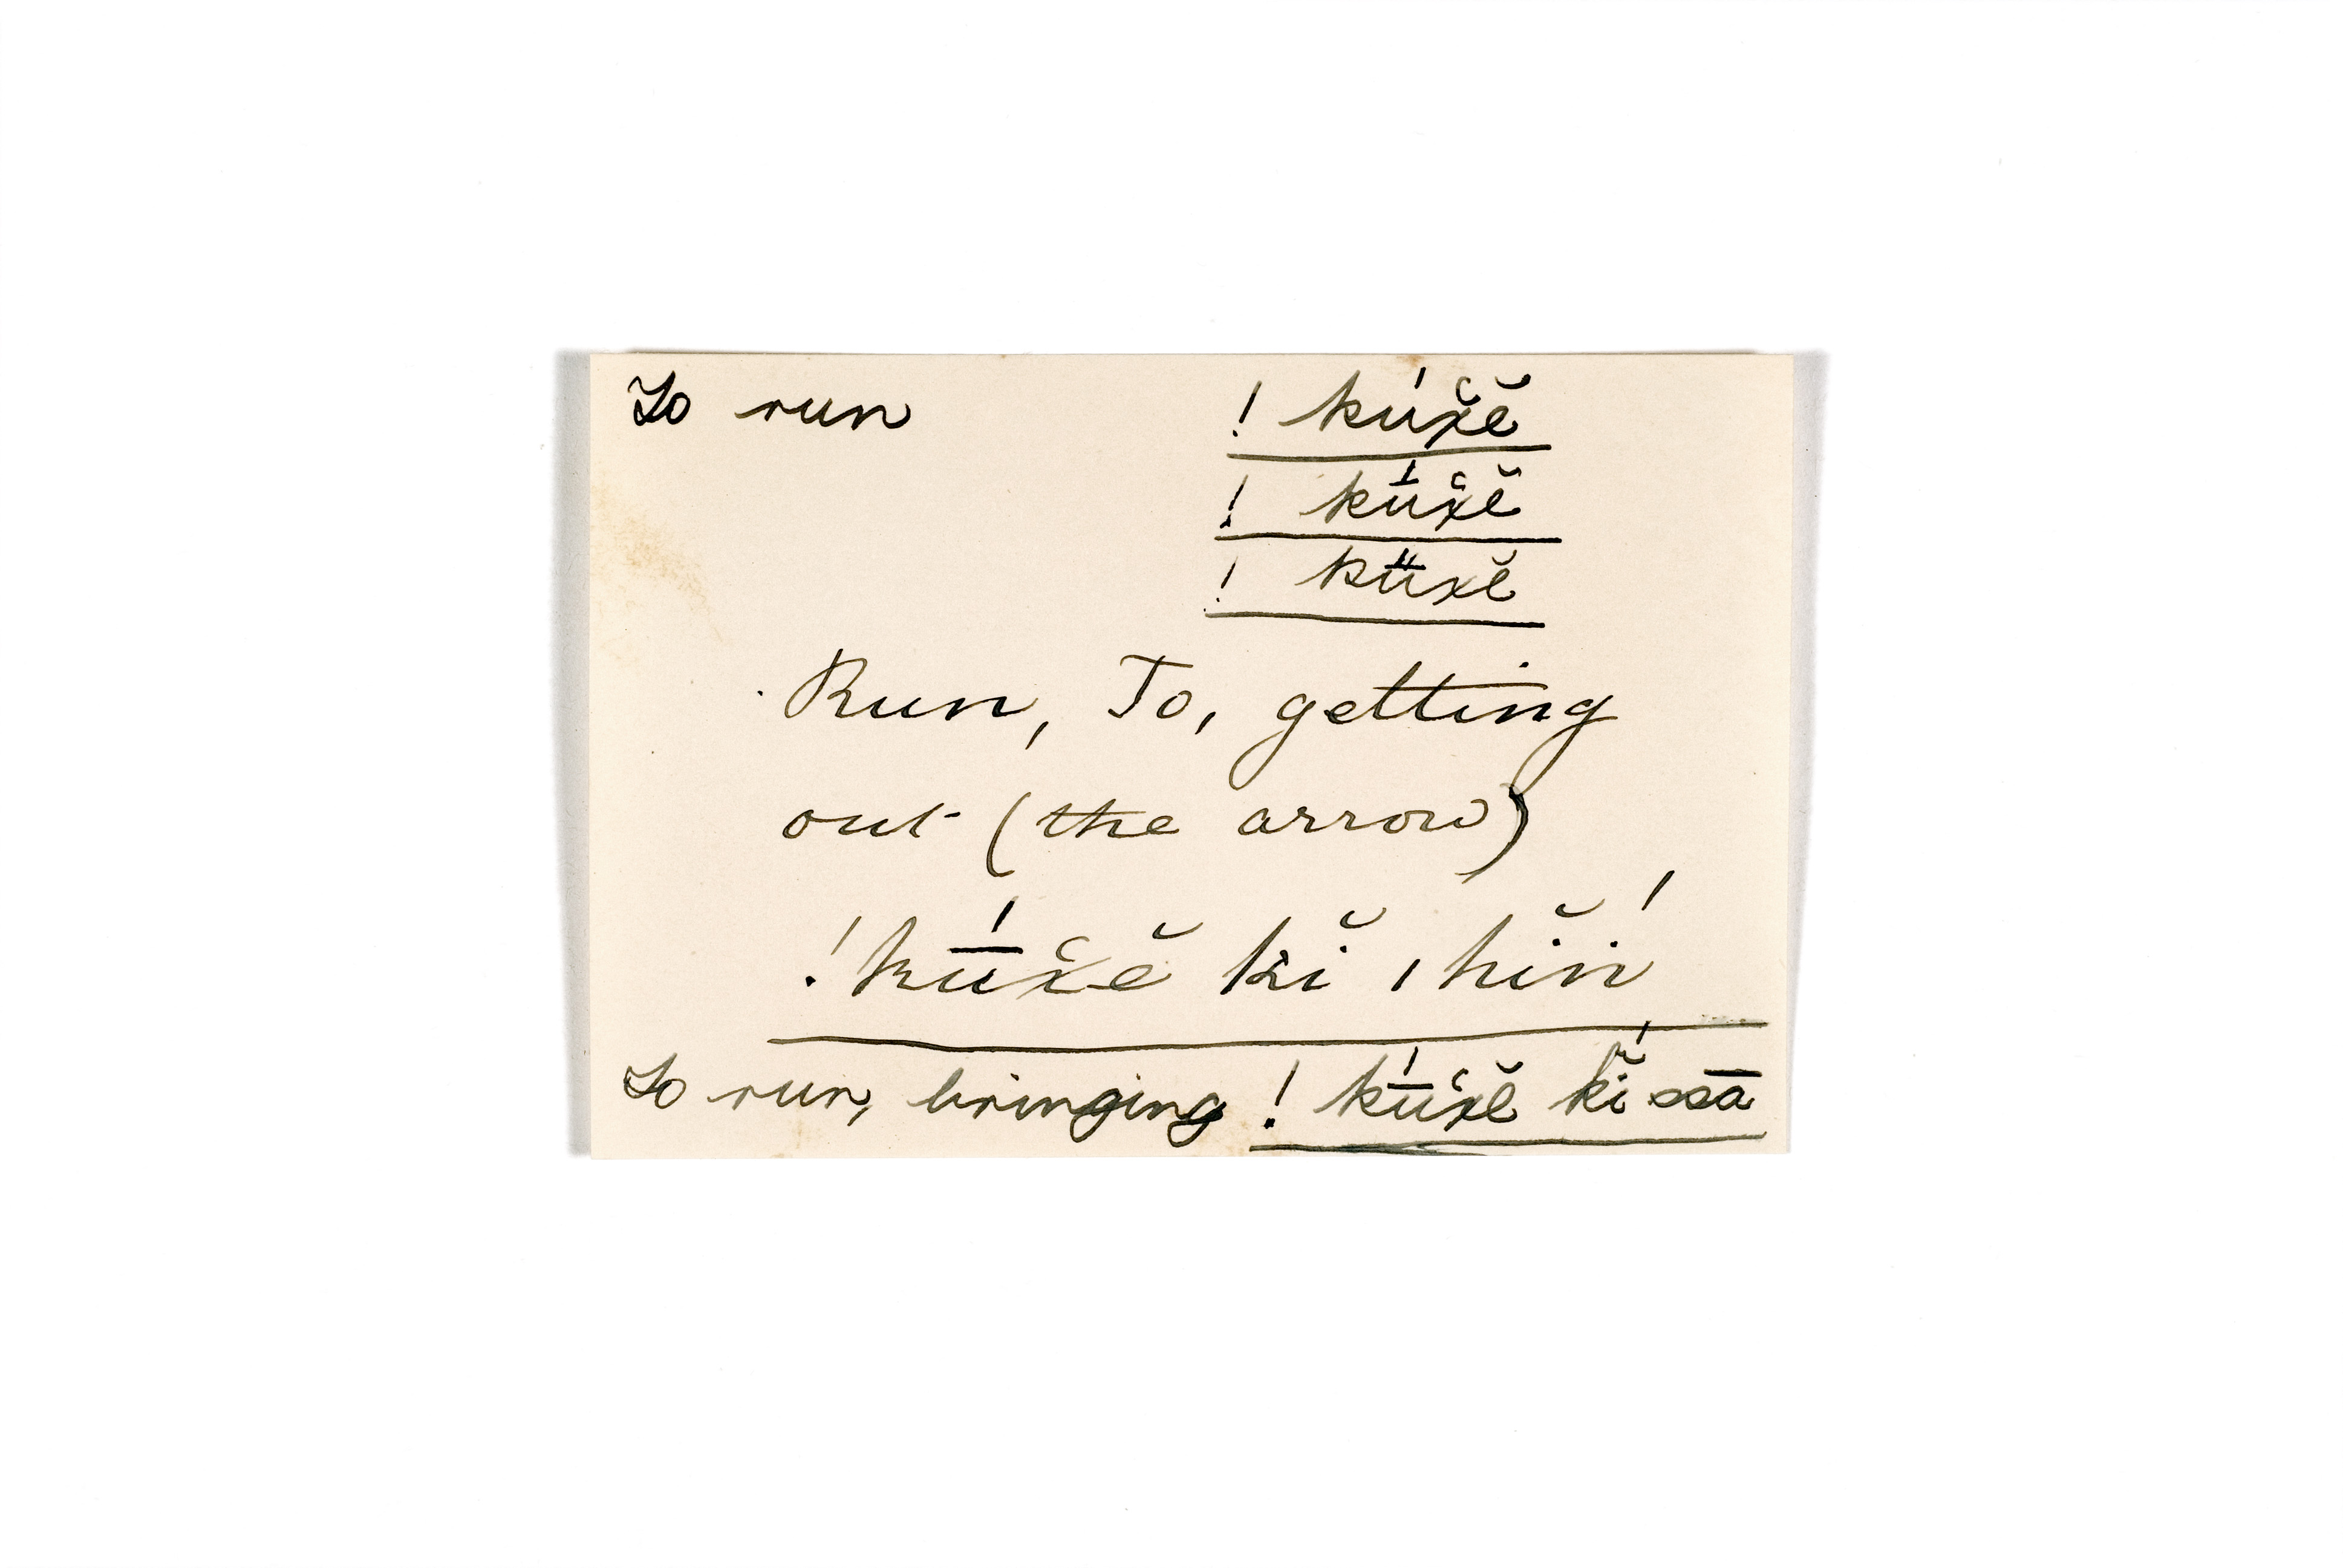 To run ! kúx̆ĕ
! kū́x̆ĕ
! kṻxĕ
Run, To, getting
out (the arrow)
!kū́x̆ĕ kĭ ıhĭń
To run, bringing ! kū́x̆ĕ kĭ́ ssā